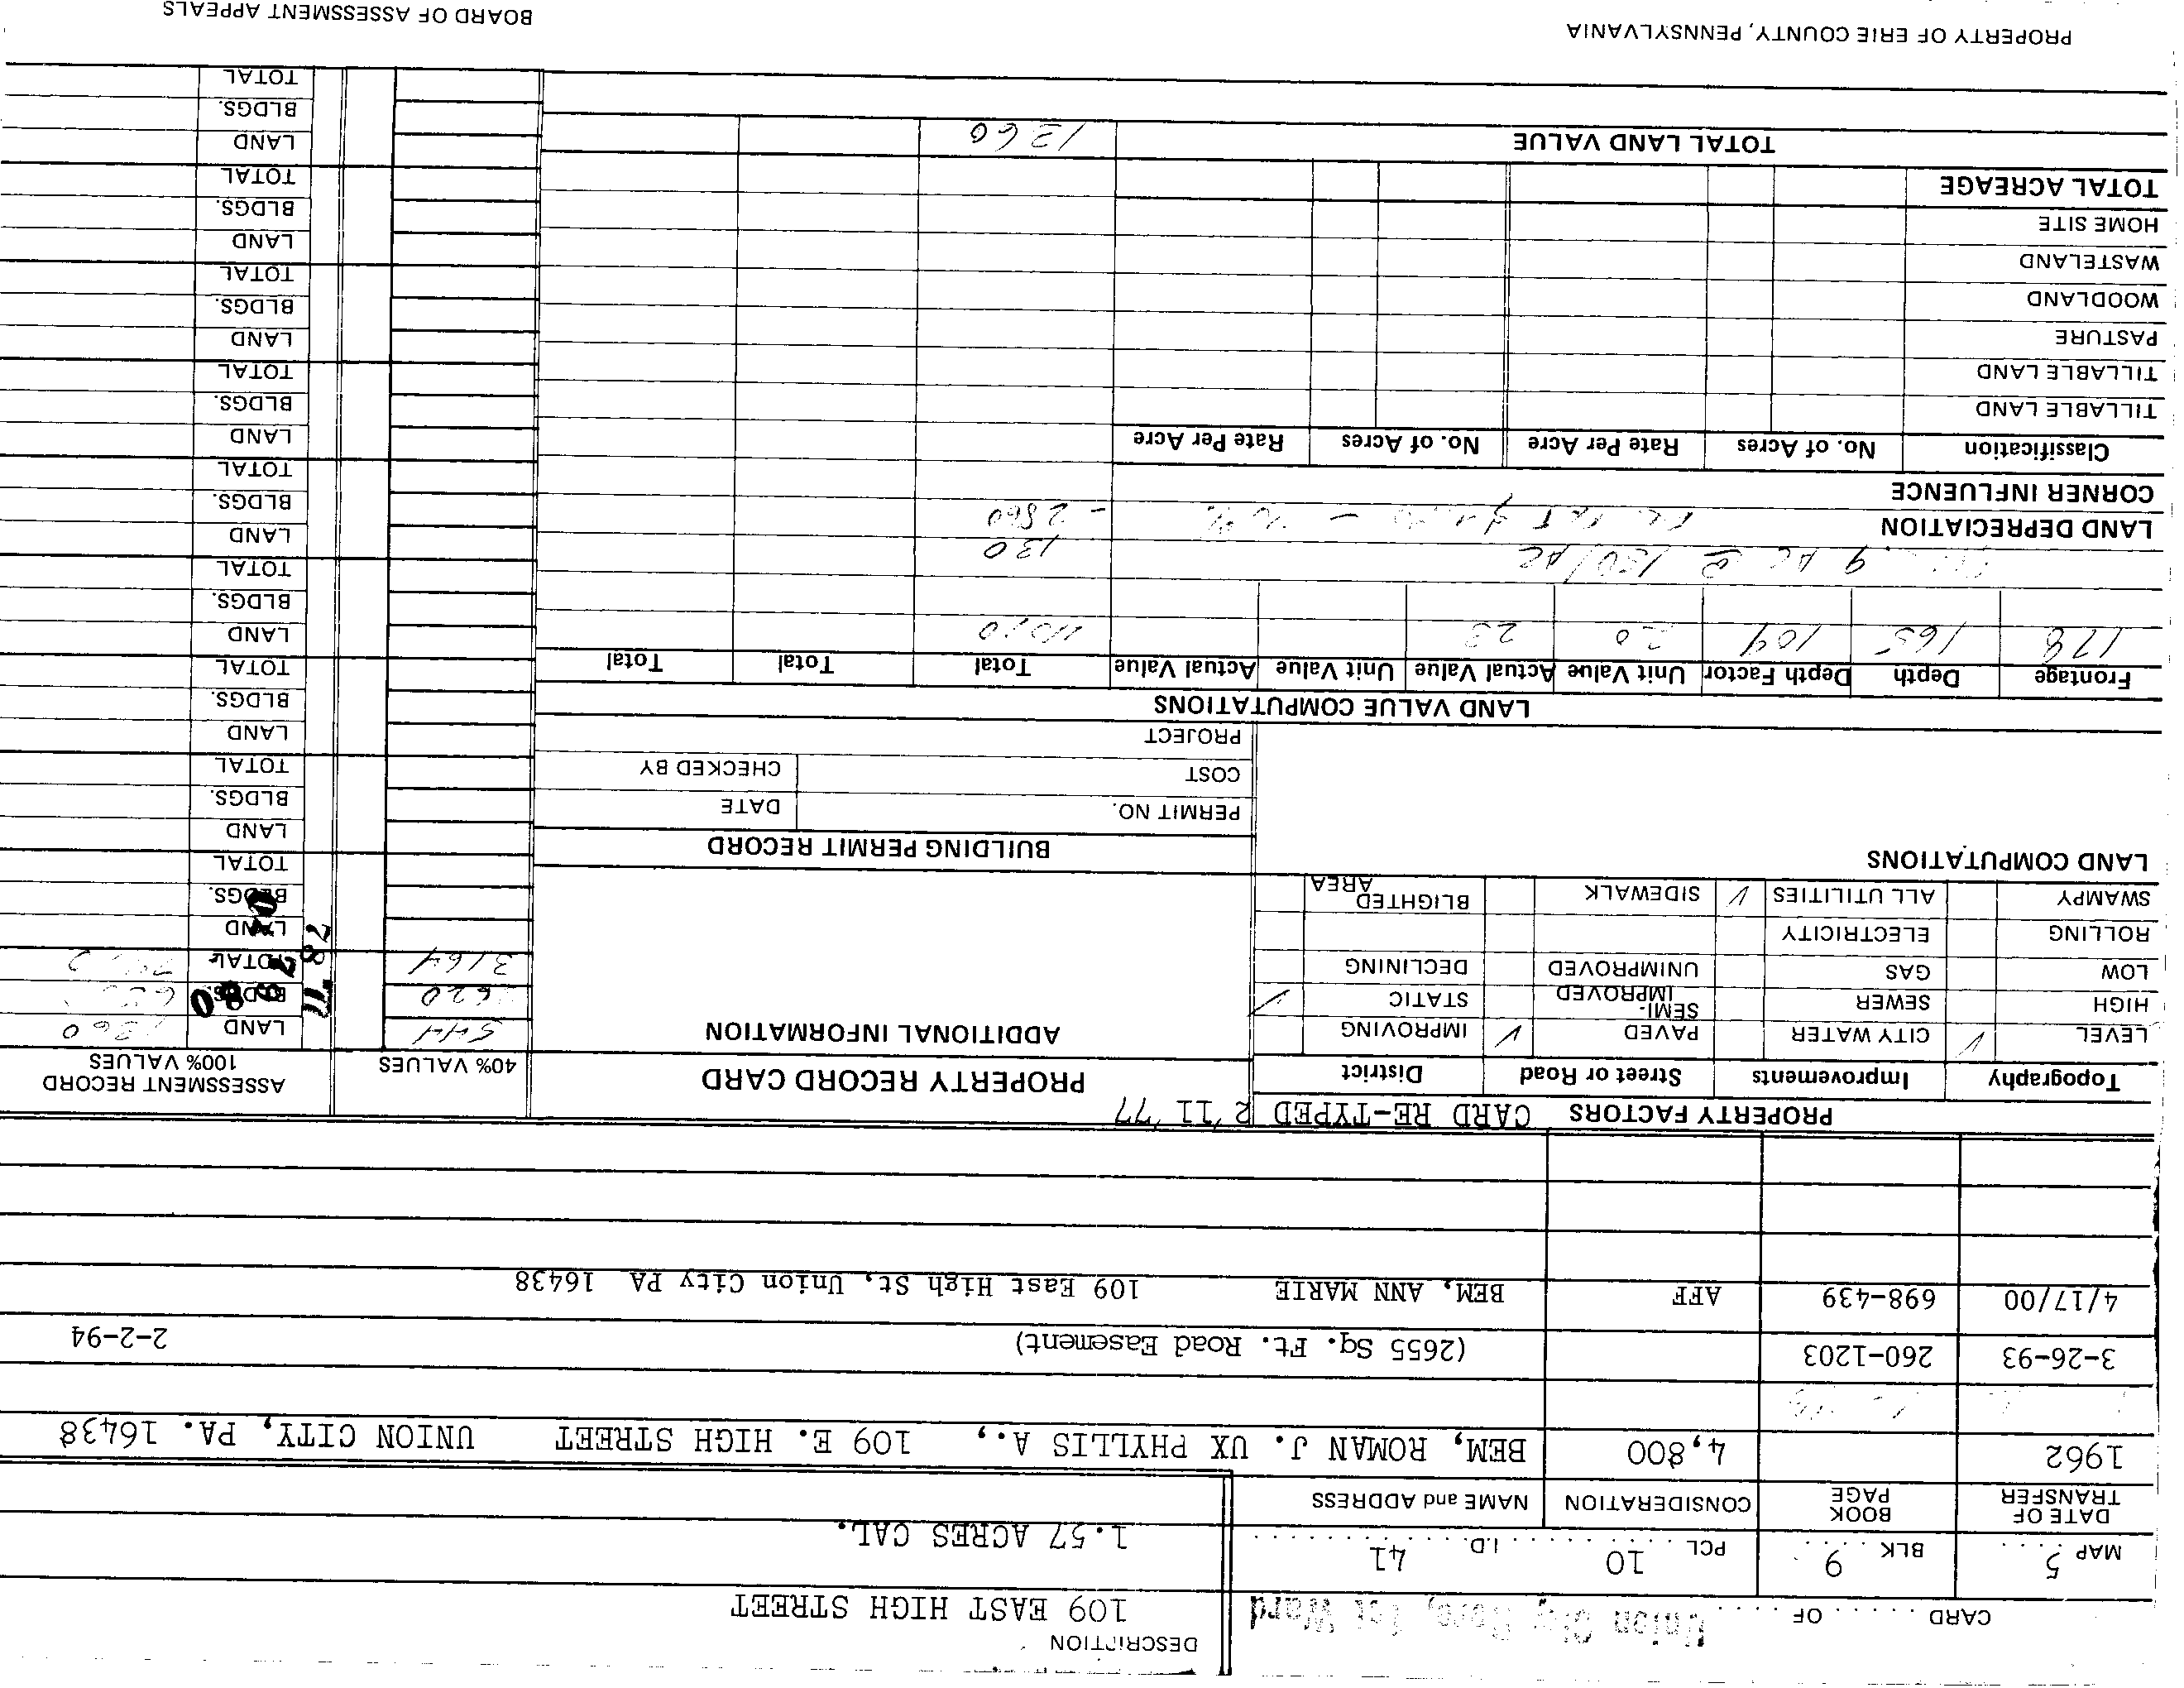 CARD . . . . . . OF . . . . .
Union City Boro, 1st Ward
DESCRIPTION
109 EAST HIGH STREET
MAP 5 BLK 9 PCL 10 I.D. 41
1.57 ACRES CAL.
DATE OF TRANSFER BOOK PAGE CONSIDERATION NAME and ADDRESS
1962 4,800 BEM, ROMAN J. UX PHYLLIS A., 109 E. HIGH STREET UNION CITY, PA. 16438
3-26-93 260-1203 (2655 Sq. Ft. Road Easement) 2-2-94
4/17/00 698-439 AFF BEM, ANN MARIE 109 East High St, Union City PA 16438
PROPERTY FACTORS CARD RE-TYPED 2 '11 '77
Topography Improvements Street or Road District
LEVEL ✓ CITY WATER PAVED ✓ IMPROVING
HIGH SEWER SEMI-IMPROVED STATIC ✓
LOW GAS UNIMPROVED DECLINING
ROLLING ELECTRICITY
SWAMPY ALL UTILITIES ✓ SIDEWALK BLIGHTED AREA
LAND COMPUTATIONS
PROPERTY RECORD CARD
ADDITIONAL INFORMATION
BUILDING PERMIT RECORD
PERMIT NO. DATE
COST CHECKED BY
PROJECT
40% VALUES
544
2620
3164
ASSESSMENT RECORD
100% VALUES
LAND 1360
BLDGS.
TOTAL
LAND
BLDGS.
TOTAL
LAND
BLDGS.
TOTAL
LAND
BLDGS.
TOTAL
LAND
BLDGS.
TOTAL
LAND
BLDGS.
TOTAL
LAND
BLDGS.
TOTAL
LAND
BLDGS.
TOTAL
LAND
BLDGS.
TOTAL
LAND
BLDGS.
TOTAL
LAND VALUE COMPUTATIONS
Frontage Depth Depth Factor Unit Value Actual Value Unit Value Actual Value Total Total Total
178 165 109 20 23
9 AC @ 150/AC 130
LAND DEPRECIATION - 2860
CORNER INFLUENCE
Classification No. of Acres Rate Per Acre No. of Acres Rate Per Acre
TILLABLE LAND
TILLABLE LAND
PASTURE
WOODLAND
WASTELAND
HOME SITE
TOTAL ACREAGE
TOTAL LAND VALUE 1360
PROPERTY OF ERIE COUNTY, PENNSYLVANIA
BOARD OF ASSESSMENT APPEALS